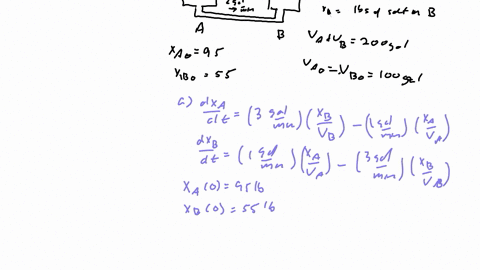 x_B = lbs of salt in B
gal
min
A B
x_{A0} = 95
x_{B0} = 55
V_A + V_B = 200 gal
V_{A0} = V_{B0} = 100 gal
a) dx_A/dt = (3 gal/min)(x_B/V_B) - (1 gal/min)(x_A/V_A)
dx_B/dt = (1 gal/min)(x_A/V_A) - (3 gal/min)(x_B/V_B)
x_A(0) = 95 lb
x_B(0) = 55 lb